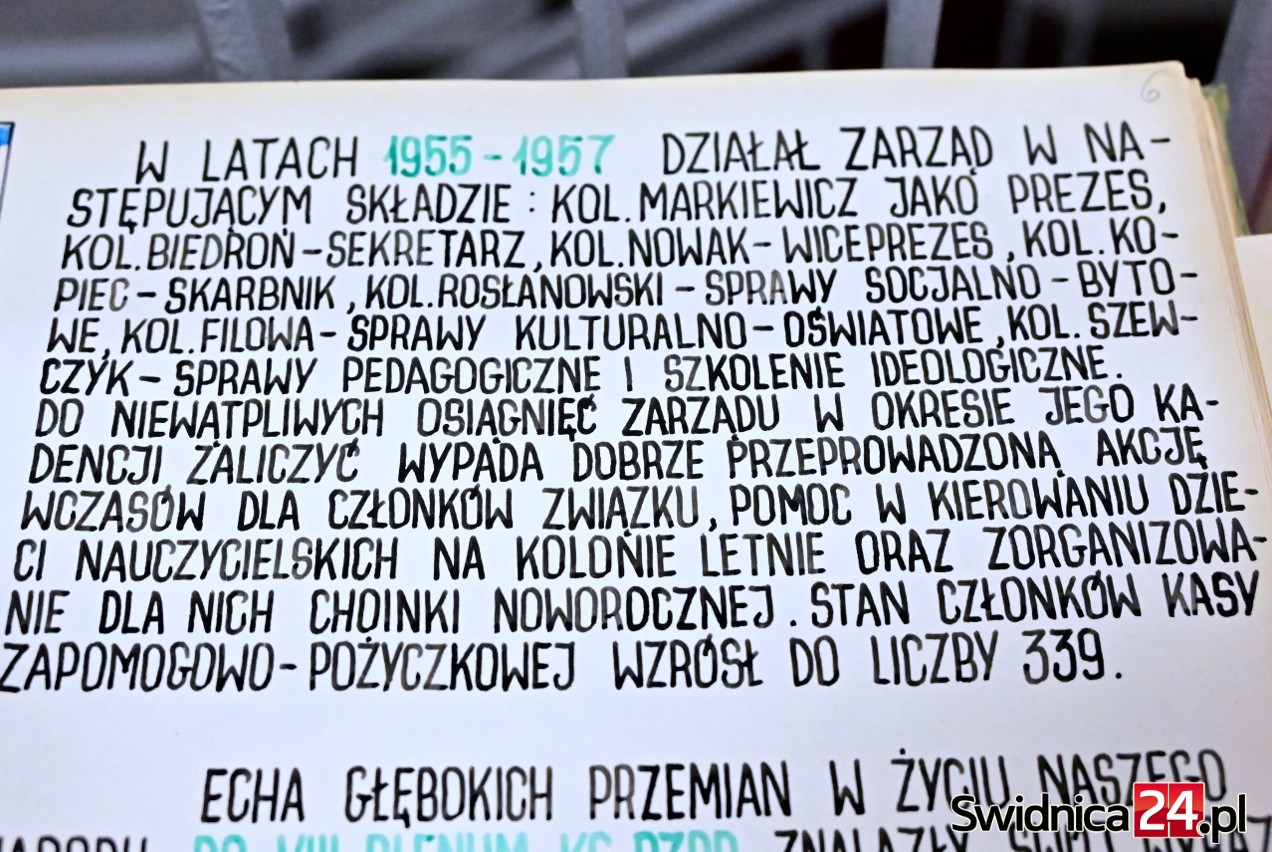 6
W LATACH 1955-1957 DZIAŁAŁ ZARZĄD W NA-
STĘPUJĄCYM SKŁADZIE: KOL. MARKIEWICZ JAKO PREZES,
KOL. BIEDROŃ-SEKRETARZ, KOL. NOWAK-WICEPREZES, KOL. KO-
PIEC-SKARBNIK, KOL. ROSŁANOWSKI-SPRAWY SOCJALNO-BYTO-
WE, KOL. FILOWA-SPRAWY KULTURALNO-OŚWIATOWE, KOL. SZEW-
CZYK-SPRAWY PEDAGOGICZNE I SZKOLENIE IDEOLOGICZNE.
DO NIEWĄTPLIWYCH OSIĄGNIĘĆ ZARZĄDU W OKRESIE JEGO KA-
DENCJI ZALICZYĆ WYPADA DOBRZE PRZEPROWADZONĄ AKCJĘ
WCZASÓW DLA CZŁONKÓW ZWIĄZKU, POMOC W KIEROWANIU DZIE-
CI NAUCZYCIELSKICH NA KOLONIE LETNIE ORAZ ZORGANIZOWA-
NIE DLA NICH CHOINKI NOWOROCZNEJ. STAN CZŁONKÓW KASY
ZAPOMOGOWO-POŻYCZKOWEJ WZRÓSŁ DO LICZBY 339.
ECHA GŁĘBOKICH PRZEMIAN W ŻYCIU NASZEGO
PO VIII PLENUM KC PZPR ZNALAZŁY
Swidnica24.pl